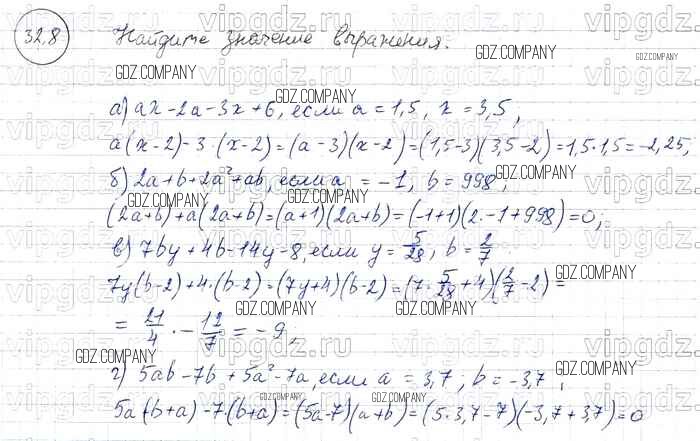 32.8 Найдите значение выражения.
а) ax-2a-3x+6, если a=1,5, x=3,5,
a(x-2)-3·(x-2)=(a-3)(x-2)=(1,5-3)(3,5-2)=1,5·1,5=-2,25;
б) 2a+b+2a²+ab, если a=-1, b=998;
(2a+b)+a(2a+b)=(a+1)(2a+b)=(-1+1)(2·-1+998)=0;
в) 7by+4b-14y-8, если y=5/28, b=2/7
7y(b-2)+4·(b-2)=(7y+4)(b-2)=(7·5/28+4)(2/7-2)=
=21/4·-12/7=-9;
г) 5ab-7b+5a²-7a, если a=3,7; b=-3,7;
5a(b+a)-7·(b+a)=(5a-7)(a+b)=(5·3,7-7)(-3,7+3,7)=0
GDZ.COMPANY
vipgdz.ru